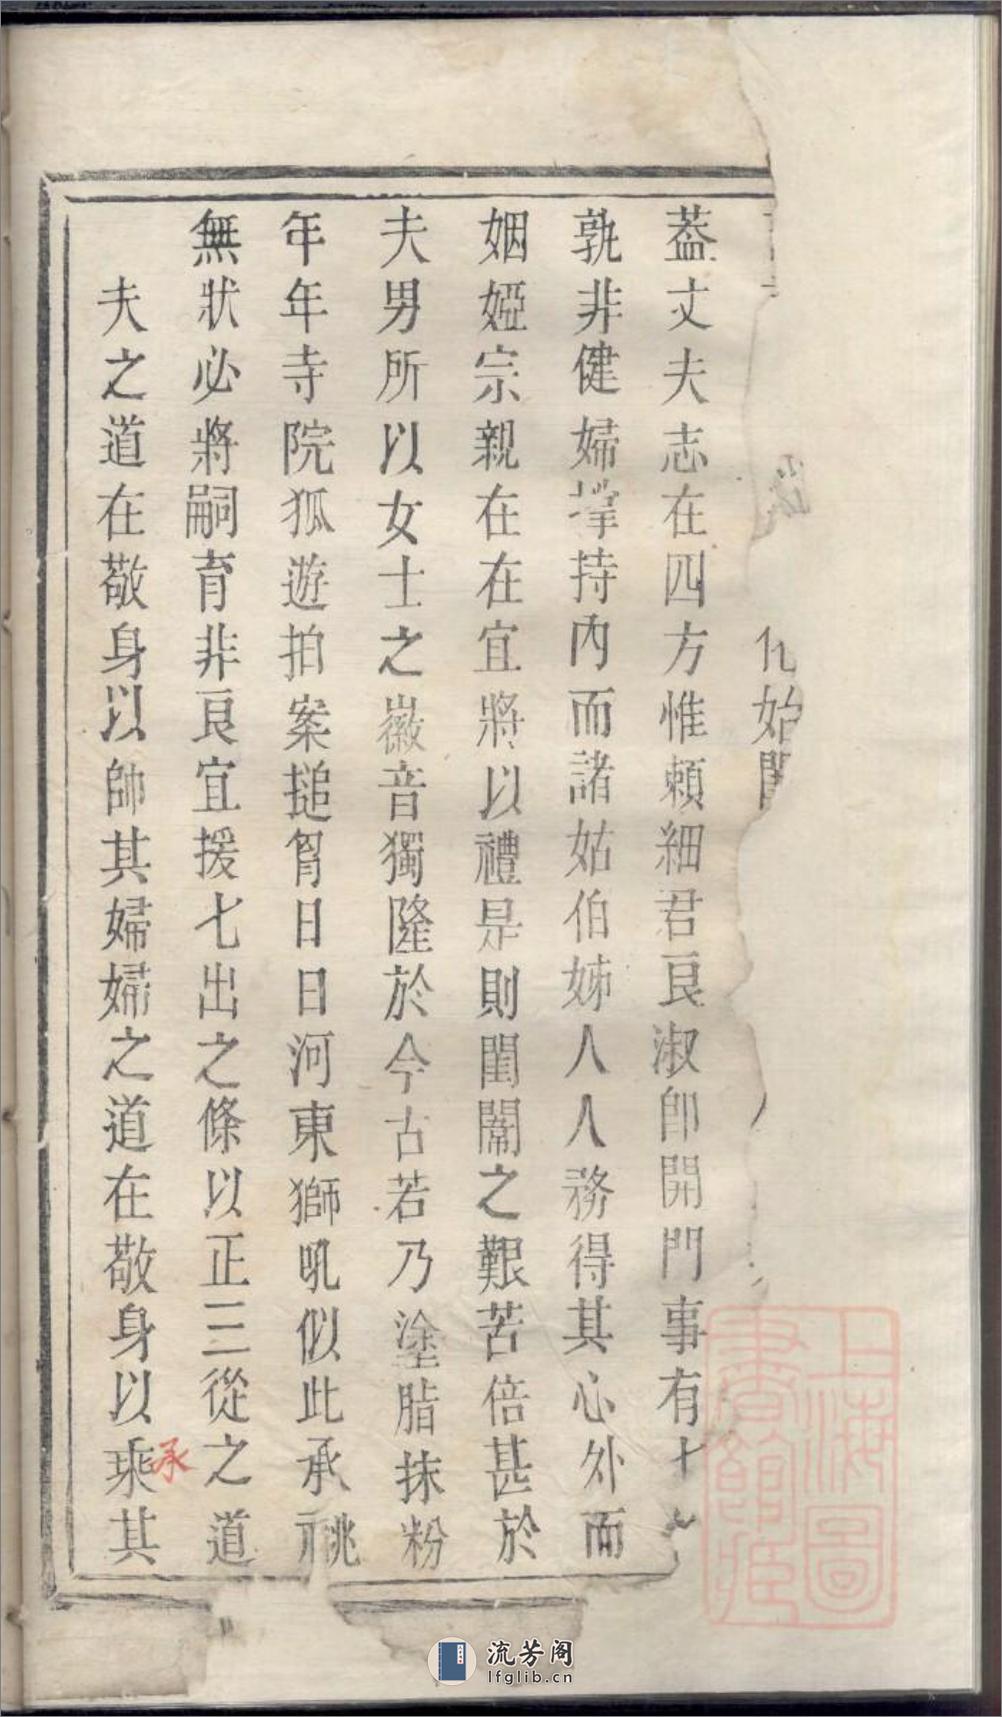 化始閨
蓋丈夫志在四方惟頼細君良淑卽開門事有七
孰非健婦撑持內而諸姑伯姊人人務得其心外而
姻婭宗親在在宜將以禮是則閨閫之艱苦倍甚於
夫男所以女士之徽音獨隆於今古若乃塗脂抹粉
年年寺院狐遊拍案搥胷日日河東獅吼似此承祧
無狀必將嗣育非良宜援七出之條以正三從之道
夫之道在敬身以帥其婦婦之道在敬身以乘其
承
上海圖書館藏
流芳阁
lfglib.cn